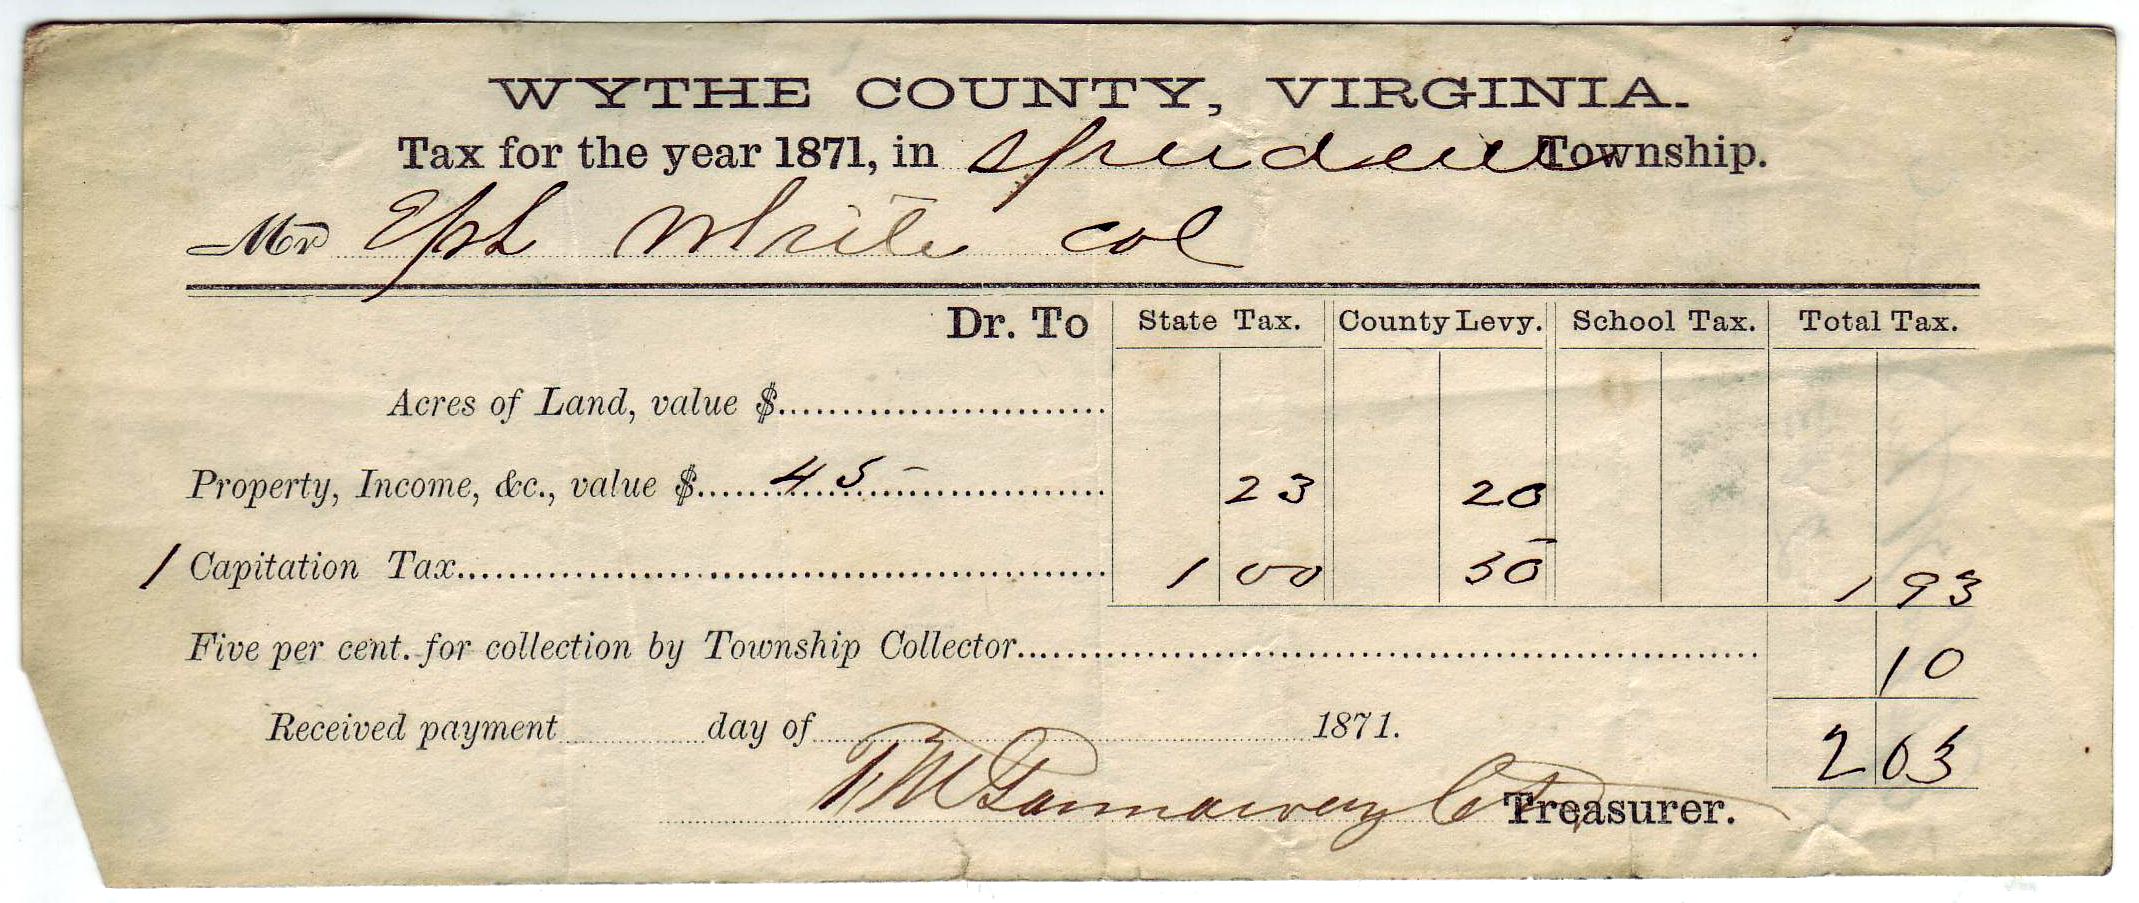 WYTHE COUNTY, VIRGINIA.
Tax for the year 1871, in Township.
Mr Eph White col
Dr. To State Tax. County Levy. School Tax. Total Tax.
Acres of Land, value $
Property, Income, &c., value $ 45 – 23 20
1 Capitation Tax 1 00 50 1 93
Five per cent. for collection by Township Collector 10
Received payment day of 1871. 2 03
Treasurer.